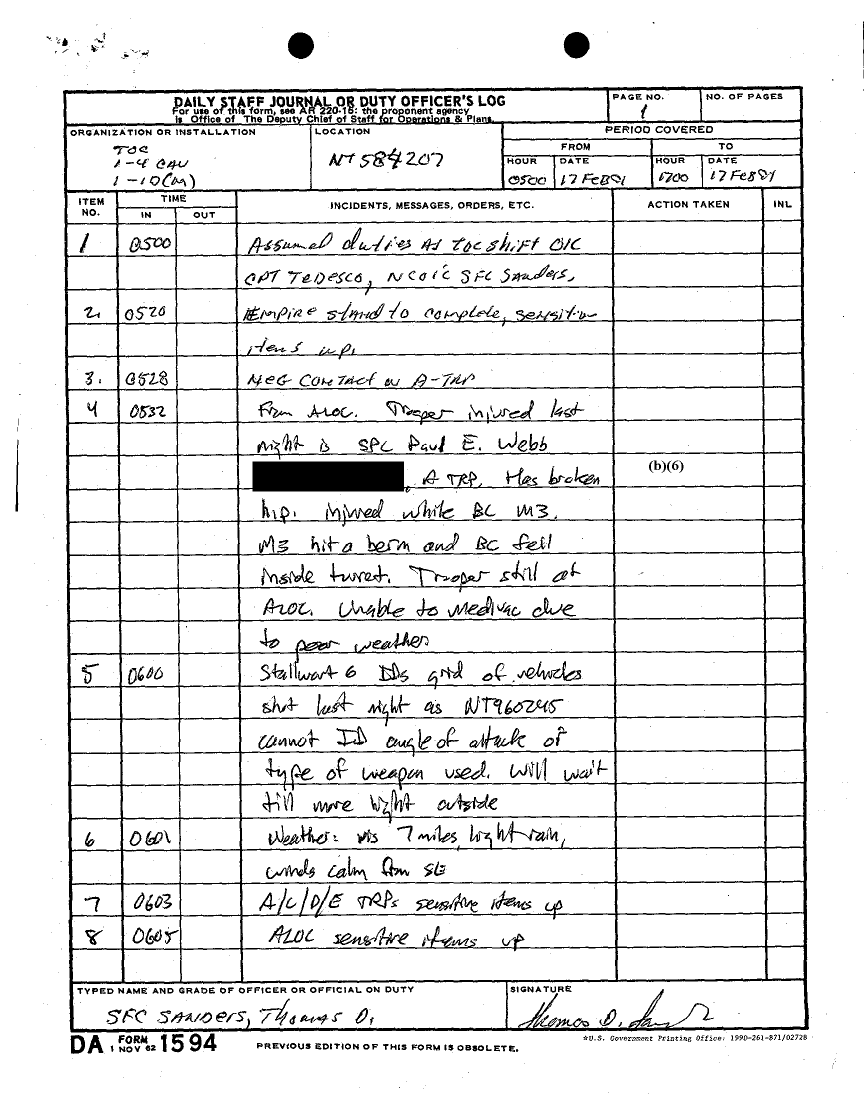 DAILY STAFF JOURNAL OR DUTY OFFICER'S LOG
For use of this form, see AR 220-15; the proponent agency
is Office of The Deputy Chief of Staff for Operations & Plans.
PAGE NO.
1
NO. OF PAGES
ORGANIZATION OR INSTALLATION
TOC
1-4 CAV
1-10(M)
LOCATION
NT584207
PERIOD COVERED
FROM
TO
HOUR
0500
DATE
17 FEB91
HOUR
1700
DATE
17 FEB91
ITEM NO.
TIME
IN
OUT
INCIDENTS, MESSAGES, ORDERS, ETC.
ACTION TAKEN
INL
1 0500 Assumed duties as TOC shift OIC
CPT Tedesco, NCOIC SFC Sanders.
2. 0520 Empire stand to complete, sensitive
items up.
3. 0528 Neg contact w A-TRP
4 0532 From ALOC. Trooper injured last
night is SPC Paul E. Webb
, A TRP. Has broken (b)(6)
hip. injured while BC M3.
M3 hit a berm and BC fell
inside turret. Trooper still at
ALOC. Unable to medivac due
to poor weather
5 0600 Stallwart 6 IDs grid of vehicles
shot last night as NT960245
cannot ID angle of attack or
type of weapon used. Will wait
till more light outside
6 0601 Weather: vis 7 miles, light rain,
winds calm from SE
7 0603 A/C/D/E TRPs sensitive items up
8 0605 ALOC sensitive items up
TYPED NAME AND GRADE OF OFFICER OR OFFICIAL ON DUTY
SFC SANDERS, Thomas D.
SIGNATURE
Thomas D.
DA FORM 1594
1 NOV 62
PREVIOUS EDITION OF THIS FORM IS OBSOLETE.
☆U.S. Government Printing Office: 1990-261-871/02728